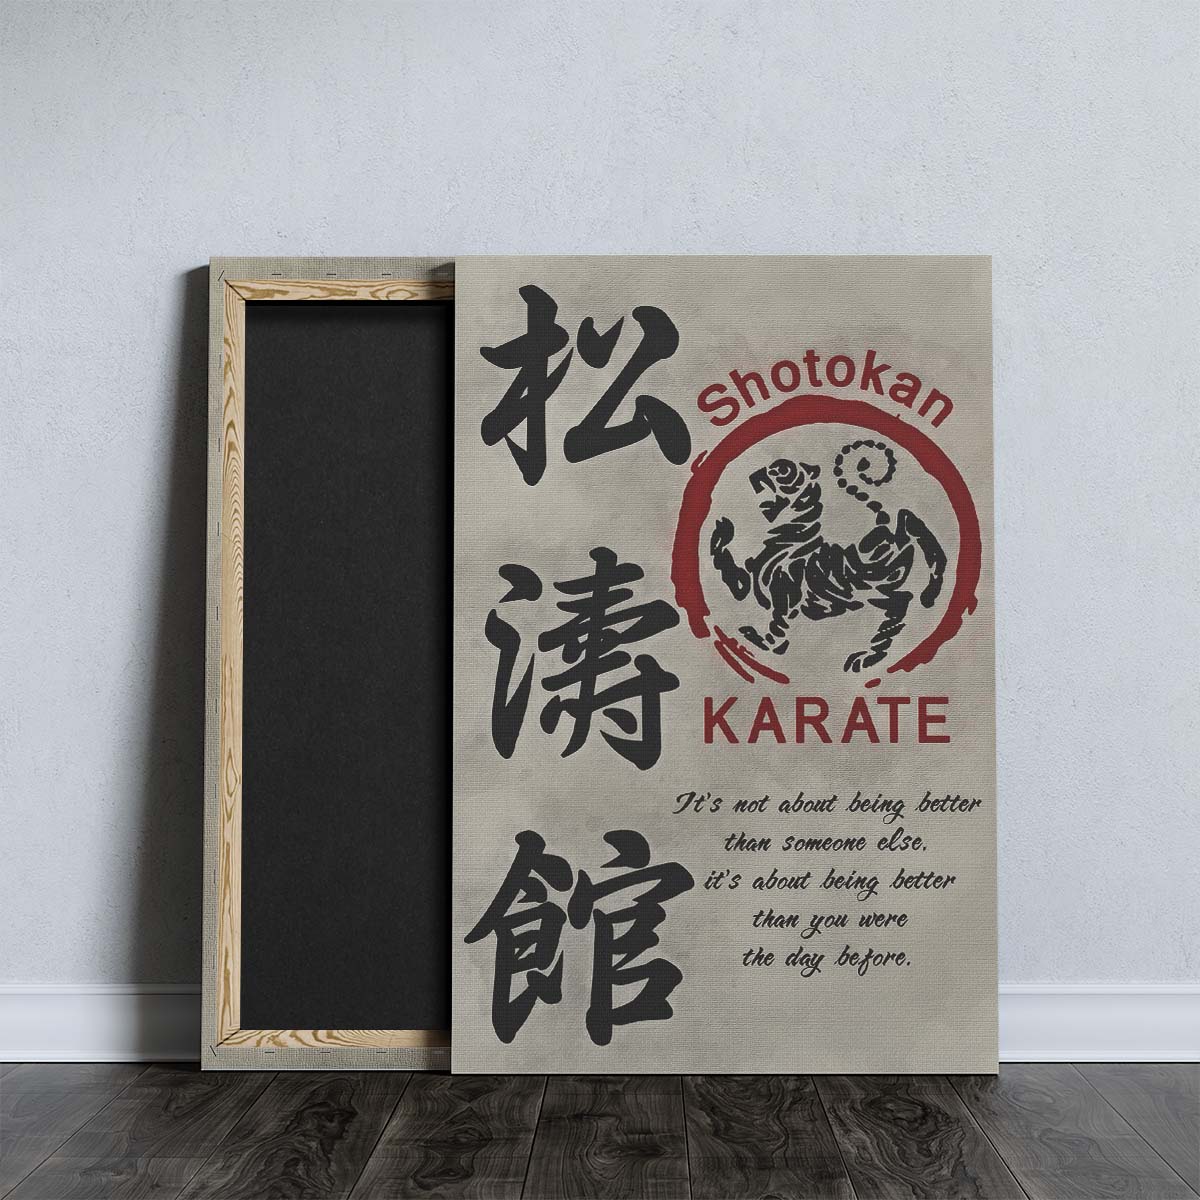 松
濤
館
Shotokan
KARATE
It's not about being better
than someone else.
it's about being better
than you were
the day before.